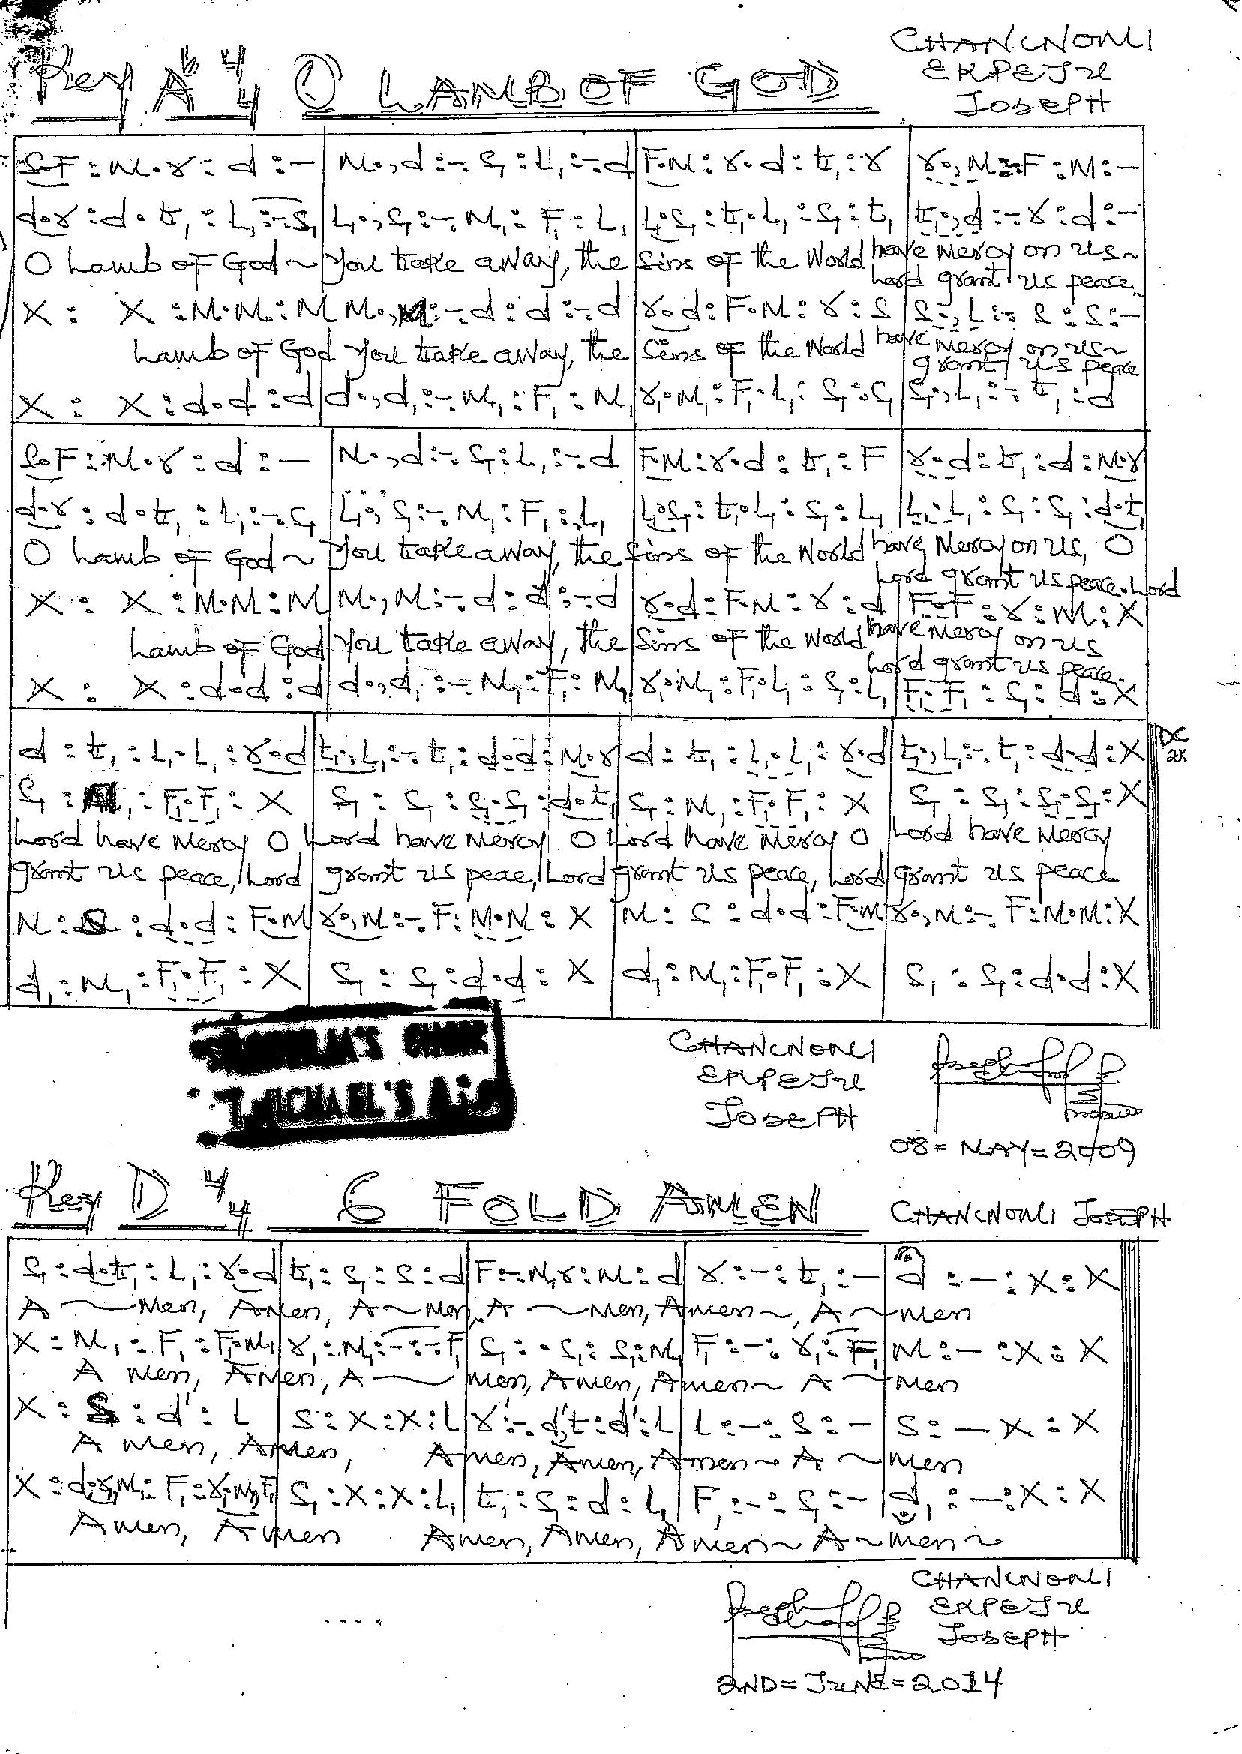 Key Ab 4/4 O LAMB OF GOD
CHANCNONLI
EKPEJU
JOSEPH
S.F : M.r : d : – | M.,d : – S₁ : L₁ : – d | F.M : r.d : t₁ : r | r.,M : F : M : –
d.r : d.t₁ : L₁ : – S₁ | L₁.,S₁ : – M₁ : F₁ : L₁ | L₁.S₁ : t₁.L₁ : S₁ : t₁ | t₁.,d : – r : d : –
O Lamb of God ~ You take away, the Sins of the World have Mercy on us ~
Lord grant us peace.
X : X : M.M : M | M.,M : – d : d : – d | r.d : F.M : r : S | S.,L : – S : S : –
Lamb of God You take away, the Sins of the World have Mercy on us ~
grant us peace
X : X : d.d : d | d.,d₁ : – M₁ : F₁ : M₁ | r₁.M₁ : F₁.L₁ : S₁ : S₁ | S₁.,L₁ : – t₁ : d
S.F : M.r : d : – | M.,d : – S₁ : L₁ : – d | F.M : r.d : t₁ : F | r.d : t₁ : d : M.r
d.r : d.t₁ : L₁ : – S₁ | L₁.,S₁ : – M₁ : F₁ : L₁ | L₁.S₁ : t₁.L₁ : S₁ : L₁ | L₁.L₁ : S₁ : S₁ : d.t₁
O Lamb of God ~ You take away, the Sins of the World have Mercy on us, O
Lord grant us peace. Lord
X : X : M.M : M | M.,M : – d : d : – d | r.d : F.M : r : d | F.F : r : M : X
Lamb of God You take away, the Sins of the World have Mercy on us
Lord grant us peace.
X : X : d.d : d | d.,d₁ : – M₁ : F₁ : M₁ | r₁.M₁ : F₁.L₁ : S₁ : L₁ | F₁.F₁ : S₁ : d : X
d : t₁ : L₁.L₁ : r.d | t₁.,L₁ : – t₁ : d.d : M.r | d : t₁ : L₁.L₁ : r.d | t₁.,L₁ : – t₁ : d.d : X
DC
2x
S₁ : M₁ : F₁.F₁ : X | S₁ : S₁ : S₁.S₁ : d.t₁ | S₁ : M₁ : F₁.F₁ : X | S₁ : S₁ : S₁.S₁ : X
Lord have Mercy O Lord have Mercy O Lord have Mercy O Lord have Mercy
grant us peace, Lord grant us peae, Lord grant us peace, Lord grant us peace
M : S : d.d : F.M | r.,M : – F : M.M : X | M : S : d.d : F.M | r.,M : – F : M.M : X
d₁ : M₁ : F₁.F₁ : X | S₁ : S₁ : d.d : X | d₁ : M₁ : F₁.F₁ : X | S₁ : S₁ : d.d : X
CHOIR
MICHAEL'S
CHANCNONLI
EKPEJU
JOSEPH
08 = MAY = 2009
Key D 4/4 6 FOLD AMEN CHANCNONLI JOSEPH
S₁ : d.t₁ : L₁ : r.d | t₁ : S₁ : S : d | F : – M,r : M : d | r : – : t₁ : – | d : – : X : X
A ~ Men, Amen, A ~ Men, A ~ Men, Amen ~, A ~ men
X : M₁ : F₁ : F₁.M₁ | r₁ : M₁ : – : – F₁ | S₁ : . S₁ : S₁ : M₁ | F₁ : – : r₁ : F₁ | M₁ : – : X : X
A men, Amen, A ~ men, Amen, Amen ~ A ~ Men
X : S : d' : L | S : X : X : L | r' : – d',t : d' : L | L : – : S : – | S : – X : X
A men, Amen, Amen, Amen, Amen ~ A ~ Men
X : d.r₁,M₁ : F₁ : r₁.M₁,F₁ | S₁ : X : X : L₁ | t₁ : S₁ : d : L₁ | F₁ : – : S₁ : – | d₁ : – : X : X
Amen, Amen Amen, Amen, Amen ~ A ~ men ~
CHANCNONLI
EKPEJU
JOSEPH
2ND = JUNE = 2014